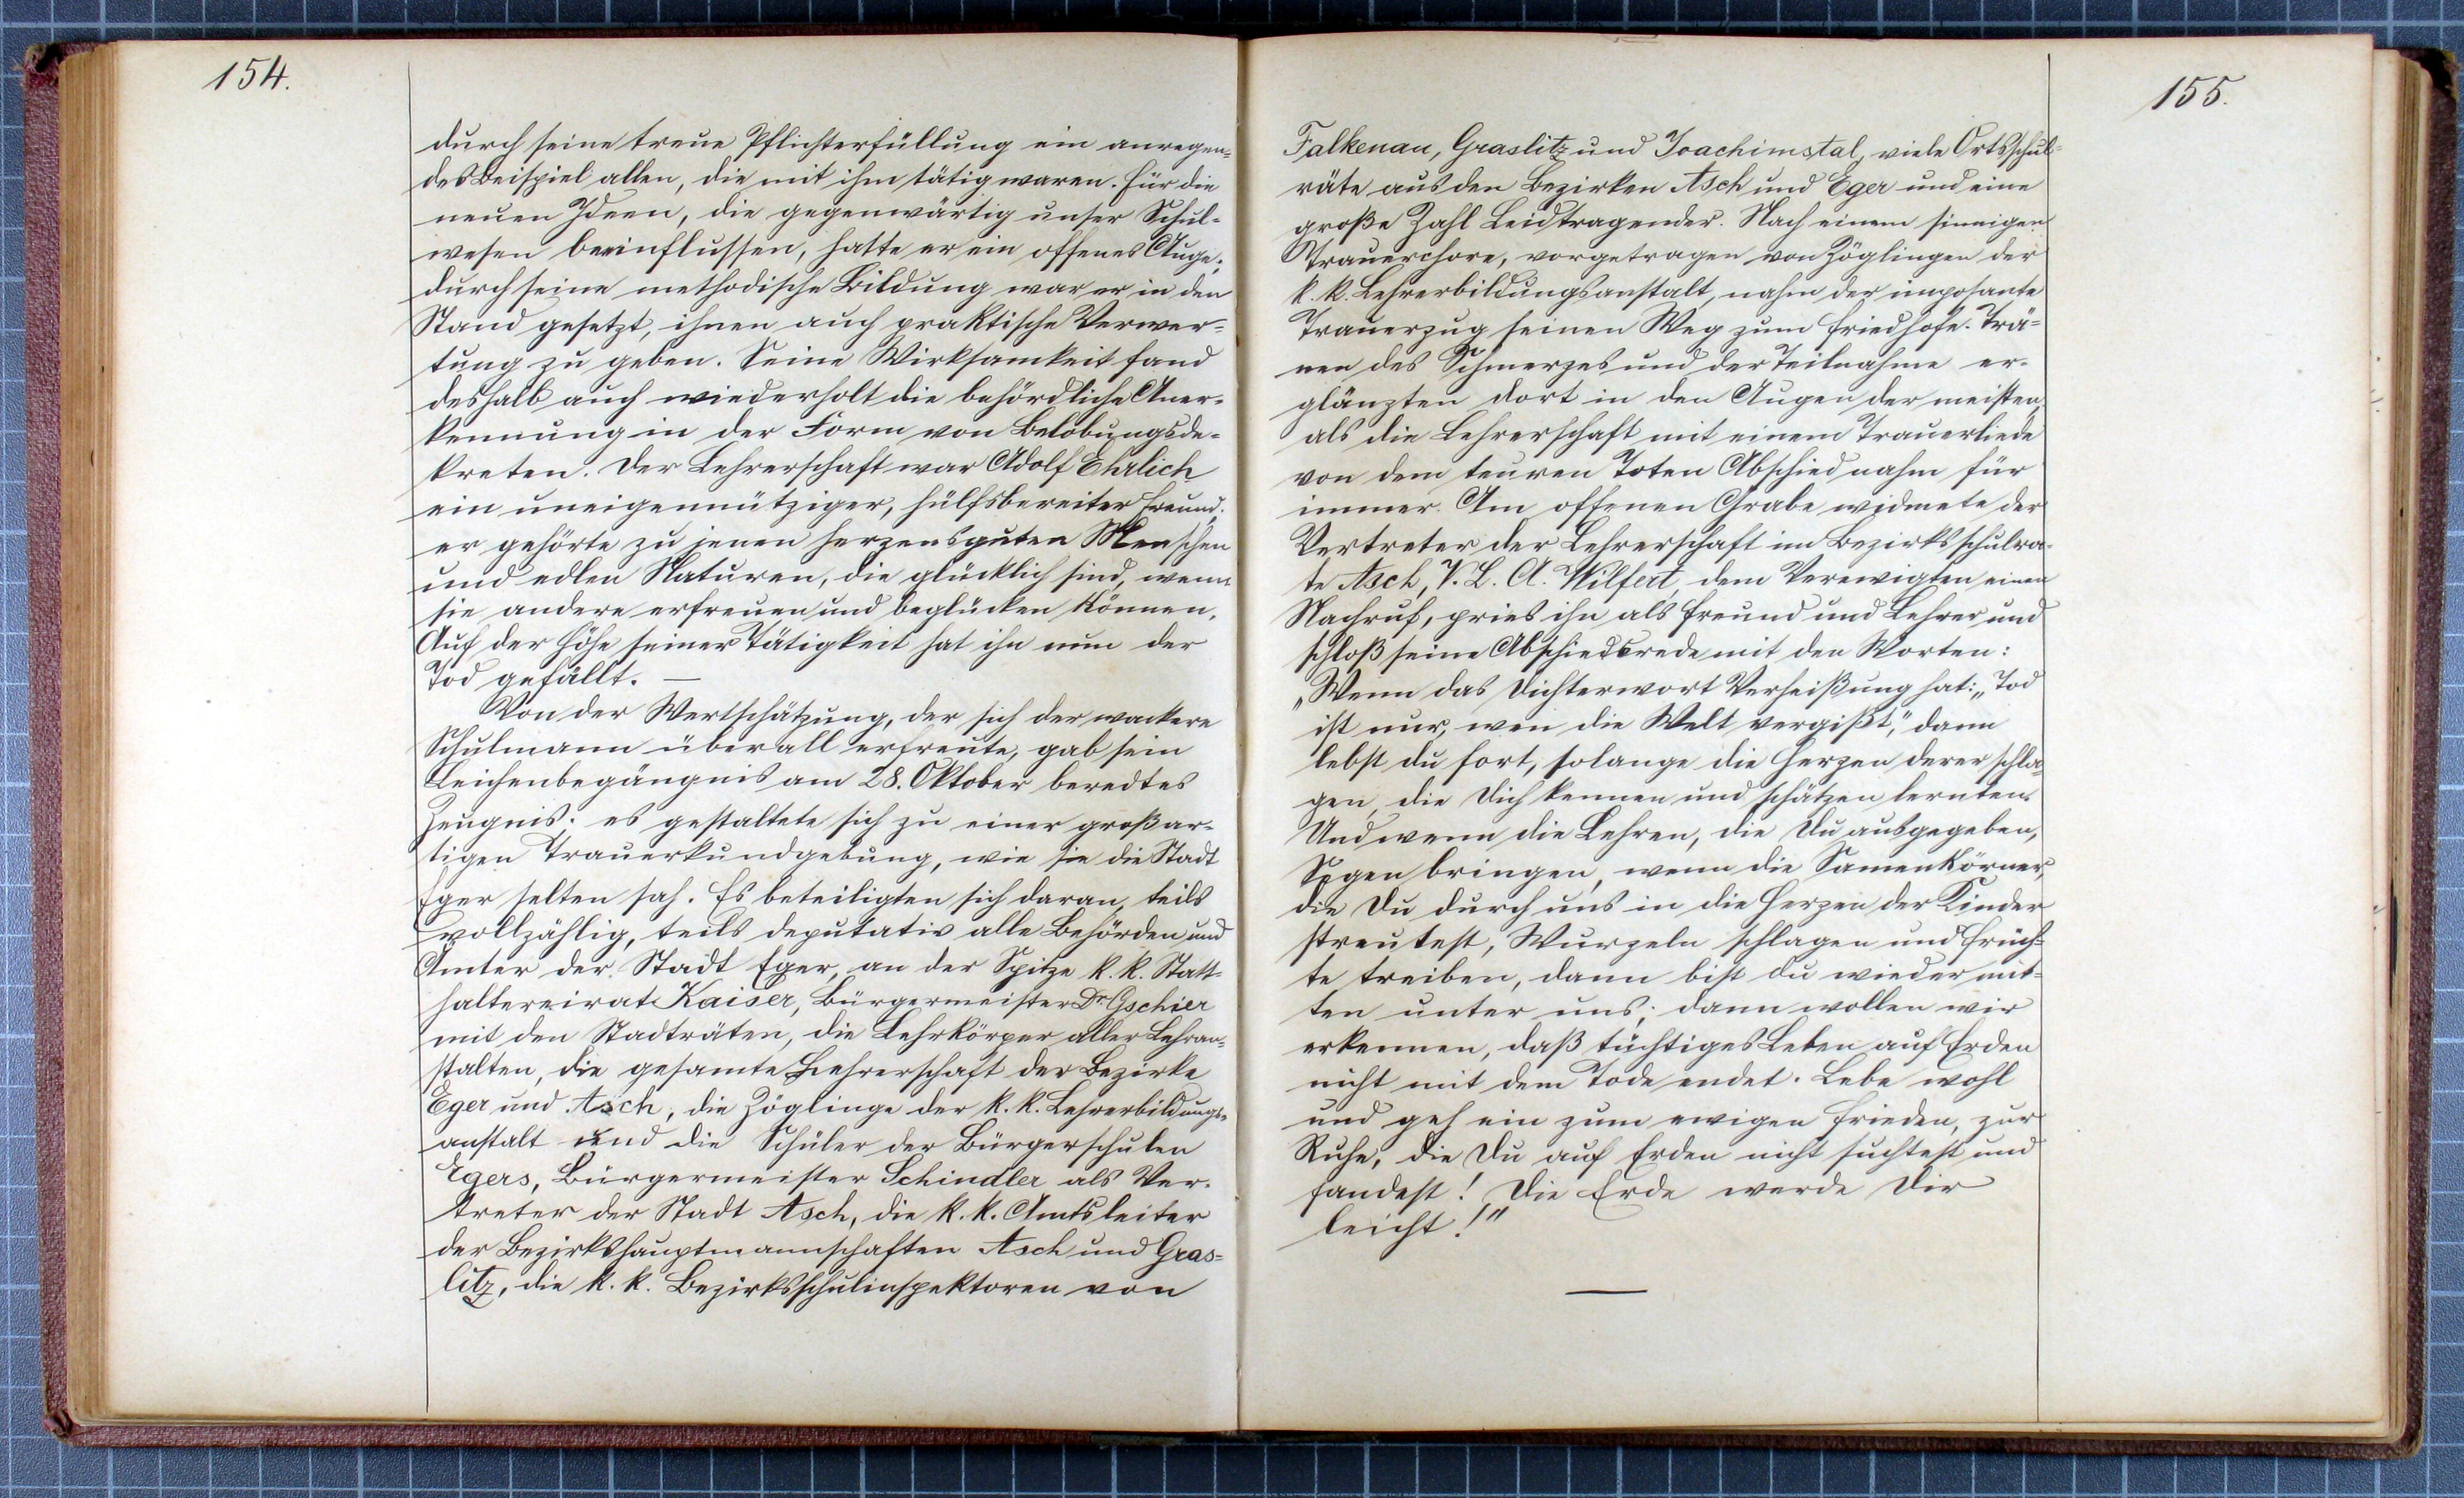 154.
durch seine treue Pflichterfüllung ein anregen-
des Beispiel allen, die mit ihm tätig waren. Für die
neuen Ideen, die gegenwärtig unser Schul-
wesen beeinflussen, hatte er ein offenes Auge;
durch seine methodische Bildung war er in den
Stand gesetzt, ihnen auch praktische Verwer-
tung zu geben. Seine Wirksamkeit fand
deshalb auch wiederholt die behördliche Aner-
kennung in der Form von Belobungsde-
kreten. Der Lehrerschaft war Adolf Ehrlich
ein uneigennütziger, hülfsbereiter Freund;
er gehörte zu jenen herzensguten Menschen
und edlen Naturen, die glücklich sind, wenn
sie andere erfreuen und beglücken können.
Auf der Höhe seiner Tätigkeit hat ihn nun der
Tod gefällt. —
Von der Wertschätzung, der sich der wackere
Schulmann überall erfreute, gab sein
Leichenbegängnis am 28. Oktober beredtes
Zeugnis; es gestaltete sich zu einer großar-
tigen Trauerkundgebung, wie sie die Stadt
Eger selten sah. Es beteiligten sich daran, teils
vollzählig, teils deputativ alle Behörden und
Ämter der Stadt Eger, an der Spitze k. k. Statt-
haltereirat Kaiser, Bürgermeister Dr. Gschier
mit den Stadträten, die Lehrkörper aller Lehran-
stalten, die gesamte Lehrerschaft der Bezirke
Eger und Asch, die Zöglinge der k. k. Lehrerbildungs-
anstalt und die Schüler der Bürgerschulen
Egers, Bürgermeister Schindler als Ver-
treter der Stadt Asch, die k. k. Amtsleiter
der Bezirkshauptmannschaften Asch und Gras-
litz, die k. k. Bezirksschulinspektoren von
155.
Falkenau, Graslitz und Joachimstal, viele Ortsschul-
räte aus den Bezirken Asch und Eger und eine
große Zahl Leidtragender. Nach einem sinnigen
Trauerchore, vorgetragen von Zöglingen der
k. k. Lehrerbildungsanstalt, nahm der imposante
Trauerzug seinen Weg zum Friedhofe. Trä-
nen des Schmerzes und der Teilnahme er-
glänzten dort in den Augen der meisten,
als die Lehrerschaft mit einem Trauerliede
von dem teuren Toten Abschied nahm für
immer. Am offenen Grabe widmete der
Vertreter der Lehrerschaft im Bezirksschulra-
te Asch, V. L. A. Wilfert, dem Verewigten einen
Nachruf, pries ihn als Freund und Lehrer und
schloß seine Abschiedsrede mit den Worten:
„Wenn das Dichterwort Verheißung hat: „Tod
ist nur, wen die Welt vergißt," dann
lebst du fort, solange die Herzen derer schla-
gen, die Dich kennen und schätzen lernten.
Und wenn die Lehren, die Du ausgegeben,
Segen bringen, wenn die Samenkörner,
die Du durch uns in die Herzen der Kinder
streutest, Wurzeln schlagen und Früch-
te treiben, dann bist du wieder mit-
ten unter uns; dann wollen wir
erkennen, daß tüchtiges Leben auf Erden
nicht mit dem Tode endet. Lebe wohl
und geh ein zum ewigen Frieden, zur
Ruhe, die Du auf Erden nicht suchtest und
fandest! Die Erde werde Dir
leicht!"